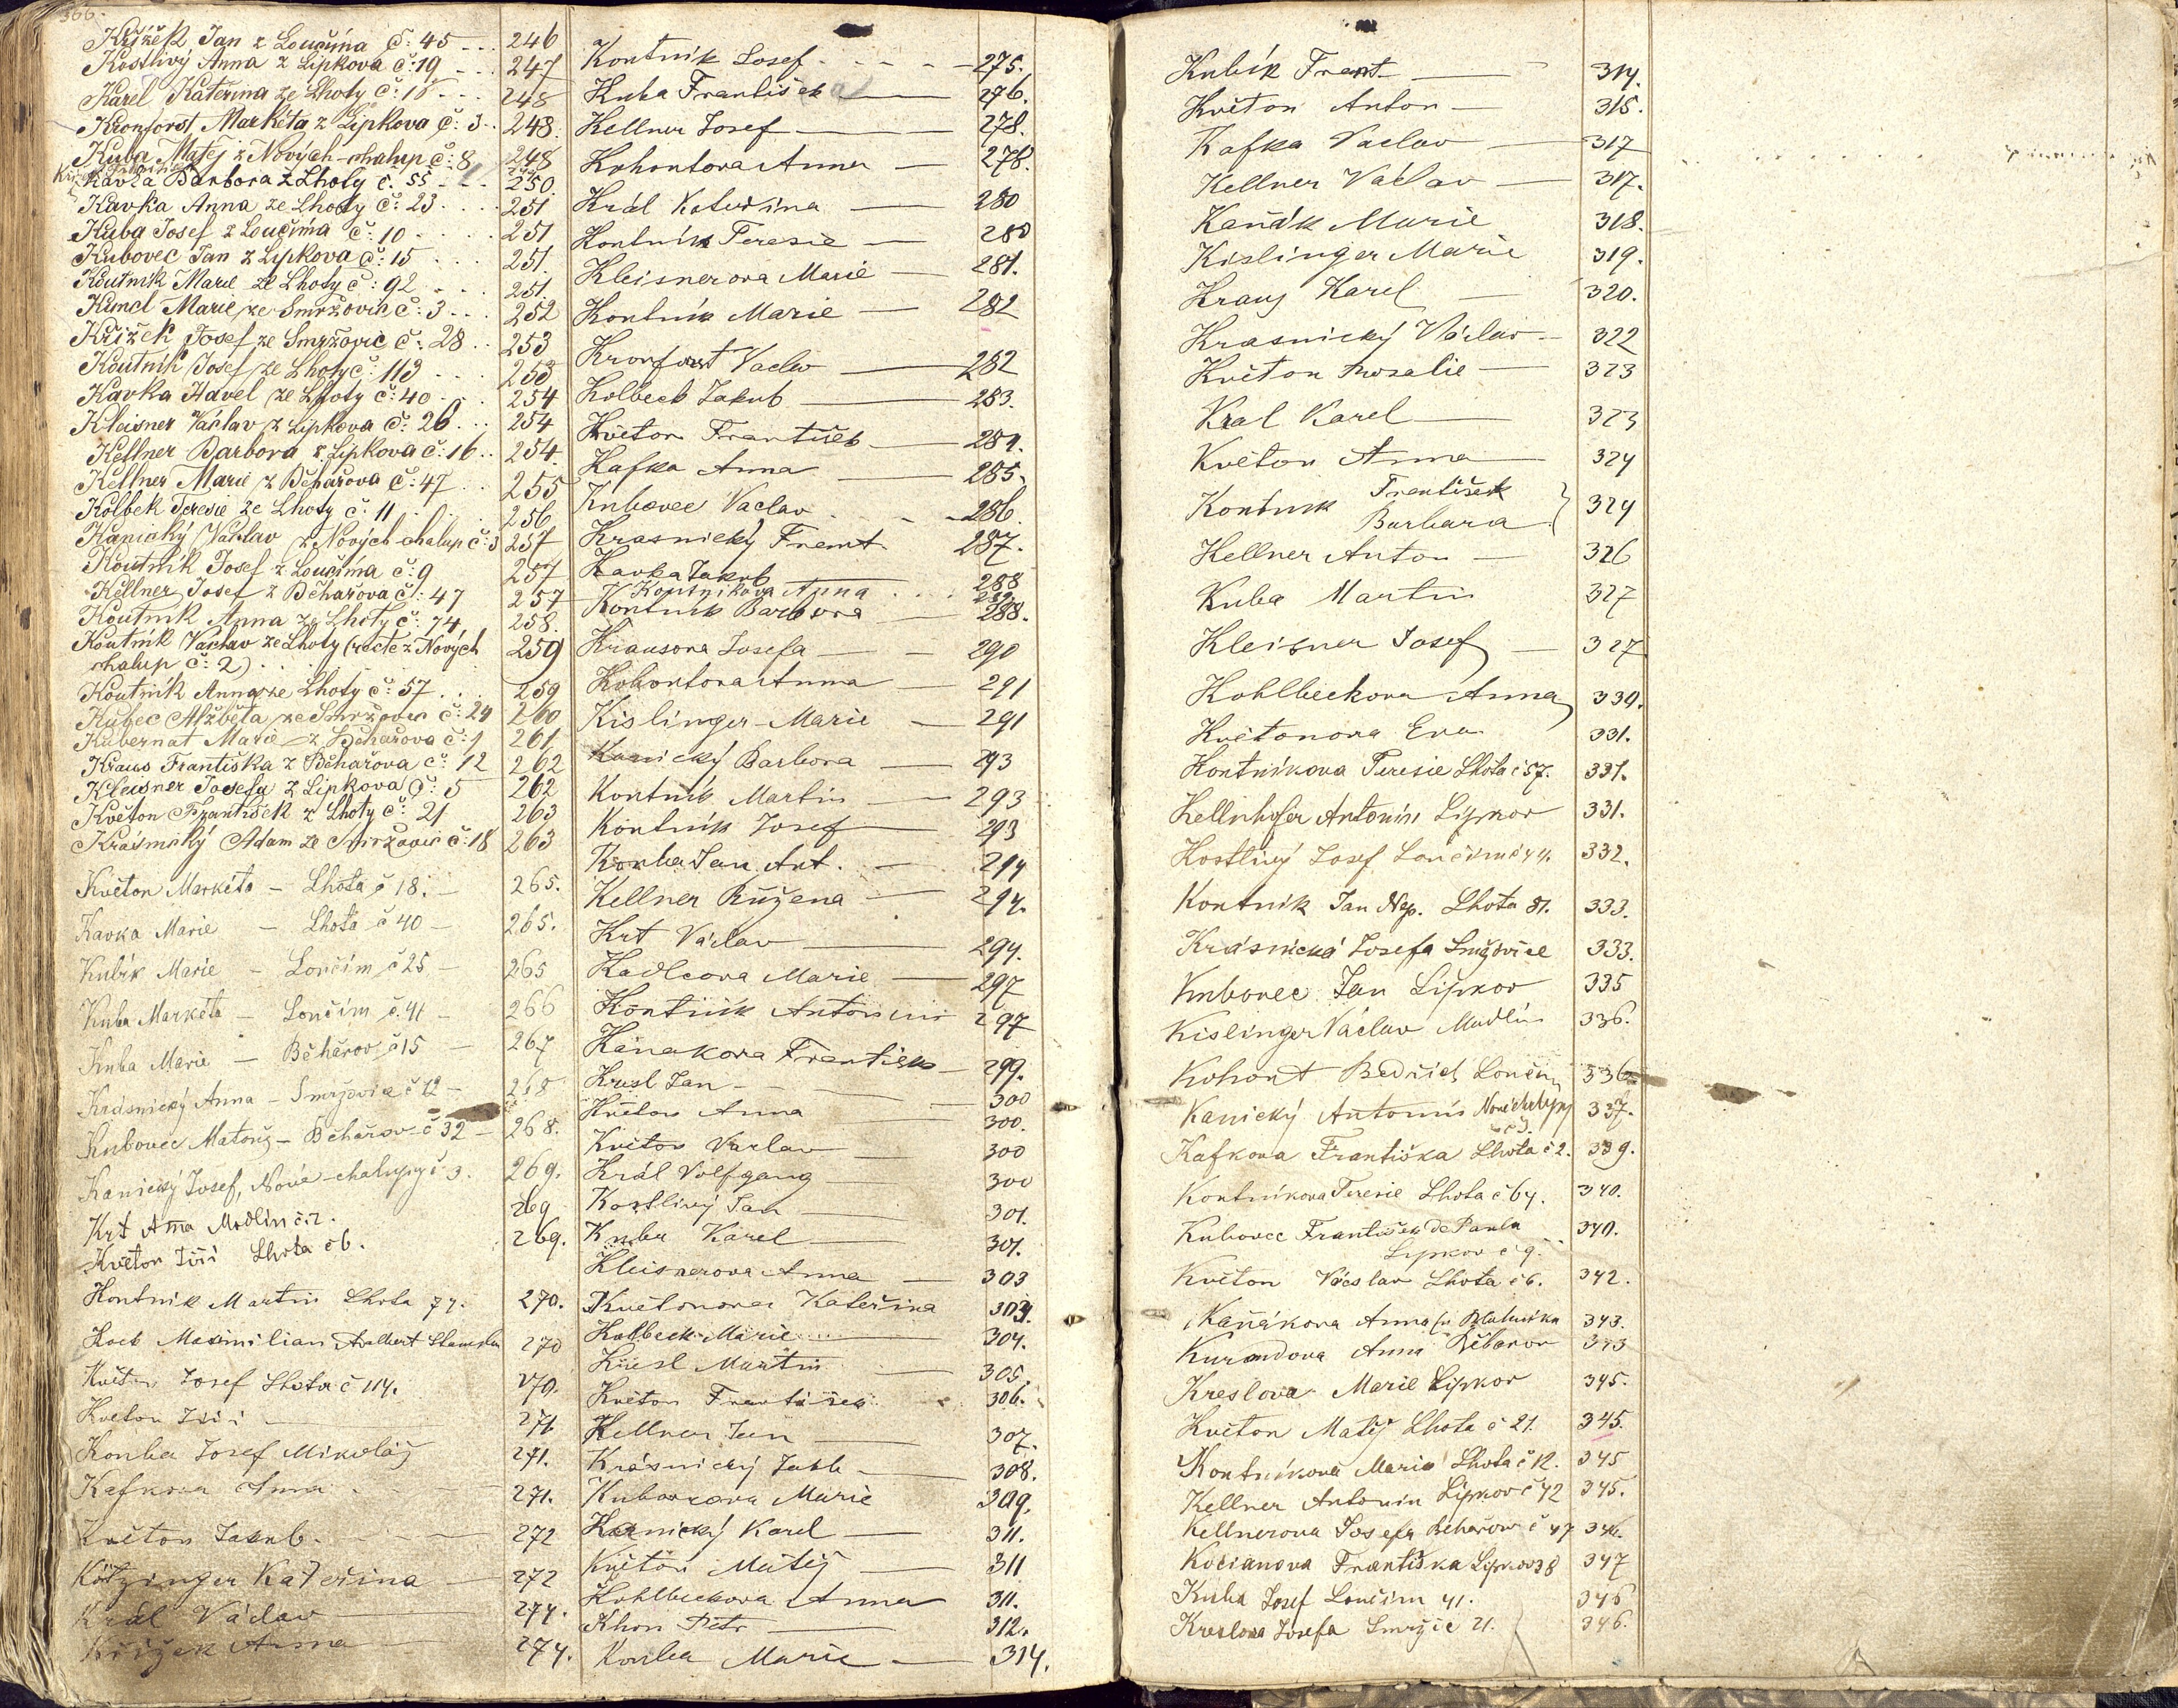 366.
Křížek Jan z Loučíma č: 45 ... 246
Kostlivý Anna z Lipkova č: 19 ... 247
Karel Kateřina ze Lhoty č: 18 ... 248
Kronforst Markéta z Lipkova č: 3 .. 248.
Kuba Matěj z Nových-chalup č: 8 248
Kavka Barbora z Lhoty č. 55 ... 250.
Kavka Anna ze Lhoty č: 23 .... 251
Kuba Josef z Loučíma č: 10 .... 251
Kubovec Jan z Lipkova č: 15 ... 251.
Koutník Marie ze Lhoty č: 92 ... 251
Kuncl Marie ze Smržovic č: 3 ... 252
Křížek Josef ze Smržovic č: 28 .. 253
Koutník Josef ze Lhoty č: 113 .... 253
Kavka Havel ze Lhoty č: 40 ... 254
Kleisner Václav z Lipkova č: 26 ... 254
Kellner Barbora z Lipkova č: 16 .. 254.
Kellner Marie z Běhařova č: 47 .. 255
Kolbek Teresie ze Lhoty č: 11 . . . 256
Kanický Václav z Nových chalup č: 3 257
Koutník Josef z Loučíma č: 9 257
Kellner Josef z Běhařova č: 47 257
Koutník Anna ze Lhoty č: 74. 258.
Koutník Václav ze Lhoty (recte z Nových 259
chalup č: 2) . . .
Koutník Anna ze Lhoty č: 57 . . . 259
Kubec Alžběta ze Smržovic č: 24 260
Kubernat Marie z Běhařova č: 1 261
Kraus Františka z Běhařova č: 12 262
Kleisner Josefa z Lipkova č: 5 262
Květon František z Lhoty č: 21 263
Krásnický Adam ze Smržovic č: 18 263
Květon Markéta – Lhota č 18. – 265.
Kavka Marie – Lhota č 40 – 265.
Kubík Marie – Loučím č 25 – 265
Kuba Markéta – Loučím č. 41 – 266
Kuba Marie – Běhařov č 15 – 267
Krásnický Anna – Smržovice č 12 – 268
Kubovec Matouš – Běhařov č 32 – 268.
Kanický Josef, Nové-chalupy č 3. 269.
Krt Anna Modlín č. 2. 269
Květon Jiří Lhota č 6. 269.
Koutník Martin Lhota 77. 270.
Koeb Maximilian Adalbert 270
Květon Josef Lhota č 114. 270.
Květon Jiří 271
Kouba Josef Mikuláš 271.
Kafkova Anna . 271.
Květon Jakub. 272
Kötzinger Kateřina – 272
Král Václav – 274.
Křížek Anna – 274.
Koutník Josef . . . . 275.
Kuba František — 276.
Kellner Josef — 278.
Kohoutova Anna — 278.
Král Kateřina — 280
Koutník Teresie — 280
Kleisnerova Marie — 281.
Koutník Marie — 282
Kronforst Vaclav — 282
Kolbeck Jakub — 283.
Květon František — 284.
Kafka Anna — 285.
Kubovec Vaclav . . . 286.
Krasnický Frant. 287.
Kavka Jakub — 288
Koutníkova Anna . . . 289.
Koutník Barbora — 288.
Krausova Josefa — 290
Kohoutova Anna — 291
Kislinger Marie — 291
Kanický Barbora — 293
Koutník Martin — 293
Koutník Josef — 293
Kouba Jan Ant. — 294
Kellner Růžena — 294.
Krt Václav — 294.
Kadlcova Marie — 297
Koutník Antonín 297
Kanakova Frantiska — 299.
Kresl Jan — 300
Květon Anna — 300.
Květon Václav — 300
Král Volfgang — 300
Kostlivý Jan — 301.
Kuba Karel — 301.
Kleisnerova Anna — 303
Květonova Kateřina 303.
Kolbeck Marie — 304.
Kresl Martin — 305.
Květon František 306.
Kellner Jan — 307.
Krásnický Jakub — 308.
Kubovcova Marie 309.
Kanický Karel — 311.
Květon Matěj — 311
Kohlbeckova Anna 311.
Khon Petr — 312.
Kouba Marie — 314.
Kubík Frant. — 314.
Květon Anton — 315.
Kafka Vaclav — 317
Kellner Václav — 317.
Kaňák Marie 318.
Kislinger Marie 319.
Kraus Karel — 320.
Krasnický Václav — 322
Květon Rosalie — 323
Kral Karel — 323
Květon Anna — 324
Koutník František } 324
Barbara
Kellner Anton — 326
Kuba Martin 327
Kleisner Josef — 327
Kohlbeckova Anna 330.
Květonova Eva 331.
Koutníkova Teresie Lhota č 57. 331.
Kellnhofer Antonín Lipkov 331.
Kostlivý Josef Loučím č 44. 332.
Koutník Jan Nep. Lhota 81. 333.
Krásnická Josefa Smržovice 333.
Kubovec Jan Lipkov 335
Kislinger Václav Modlín 336.
Kohout Bedřich Loučím 336
Kanický Antonín Nové chalupy 337.
č 3.
Kafkova Františka Lhota č 2. 339.
Koutníkova Teresie Lhota č 64. 340.
Kubovec František de Paula 340.
Lipkov č 9.
Květon Václav Lhota č 6. 342.
Kaňákova Anna 343.
Anna Běhařov 343
Kreslova Marie Lipkov 345.
Květon Matěj Lhota č 21. 345.
Koutníkova Marie Lhota č 12. 345
Kellner Antonín Lipkov č 42 345.
Kellnerova Josefa Běhařov č 47 346.
Kocianova Františka Lipkov 38 347
Kuba Josef Loučím 41. 346
Kreslova Josefa Smržic 21. 346.